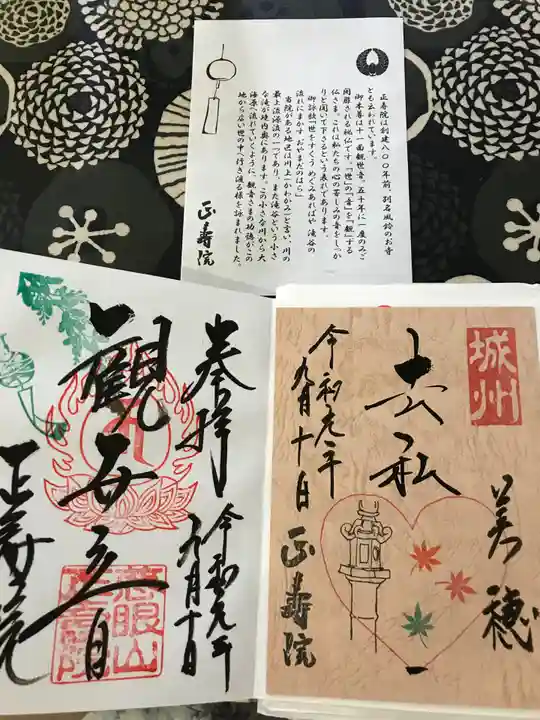 正寿院は創建八〇〇年前、別名風鈴のお寺
とも云われています。
御本尊は十一面観世音、五十年に一度のみご
開扉される秘仏です。「世」の「音」を「観」する
仏さま、これは私たちの心の苦しみの音をしっか
りと聞いて下さるという表れであります。
御詠歌「世をすくう めぐみあればや 滝谷の
流れにまかす おやまだのはら」
当院がある地区は川上（かわかみ）と言い、川の
最上流源流の一つであり、また滝谷という小さ
な滝が境内奥にあります。この小さな川から大
海原へ流れていくように、観音さまの功徳がこの
地から広い世の中へ行き渡る様を詠まれました。
正寿院
奉拝
令和元年
九月十日
観世音
慈眼山
正寿院
正寿院
城州
美穂
去私
令和元年
九月十日
正寿院